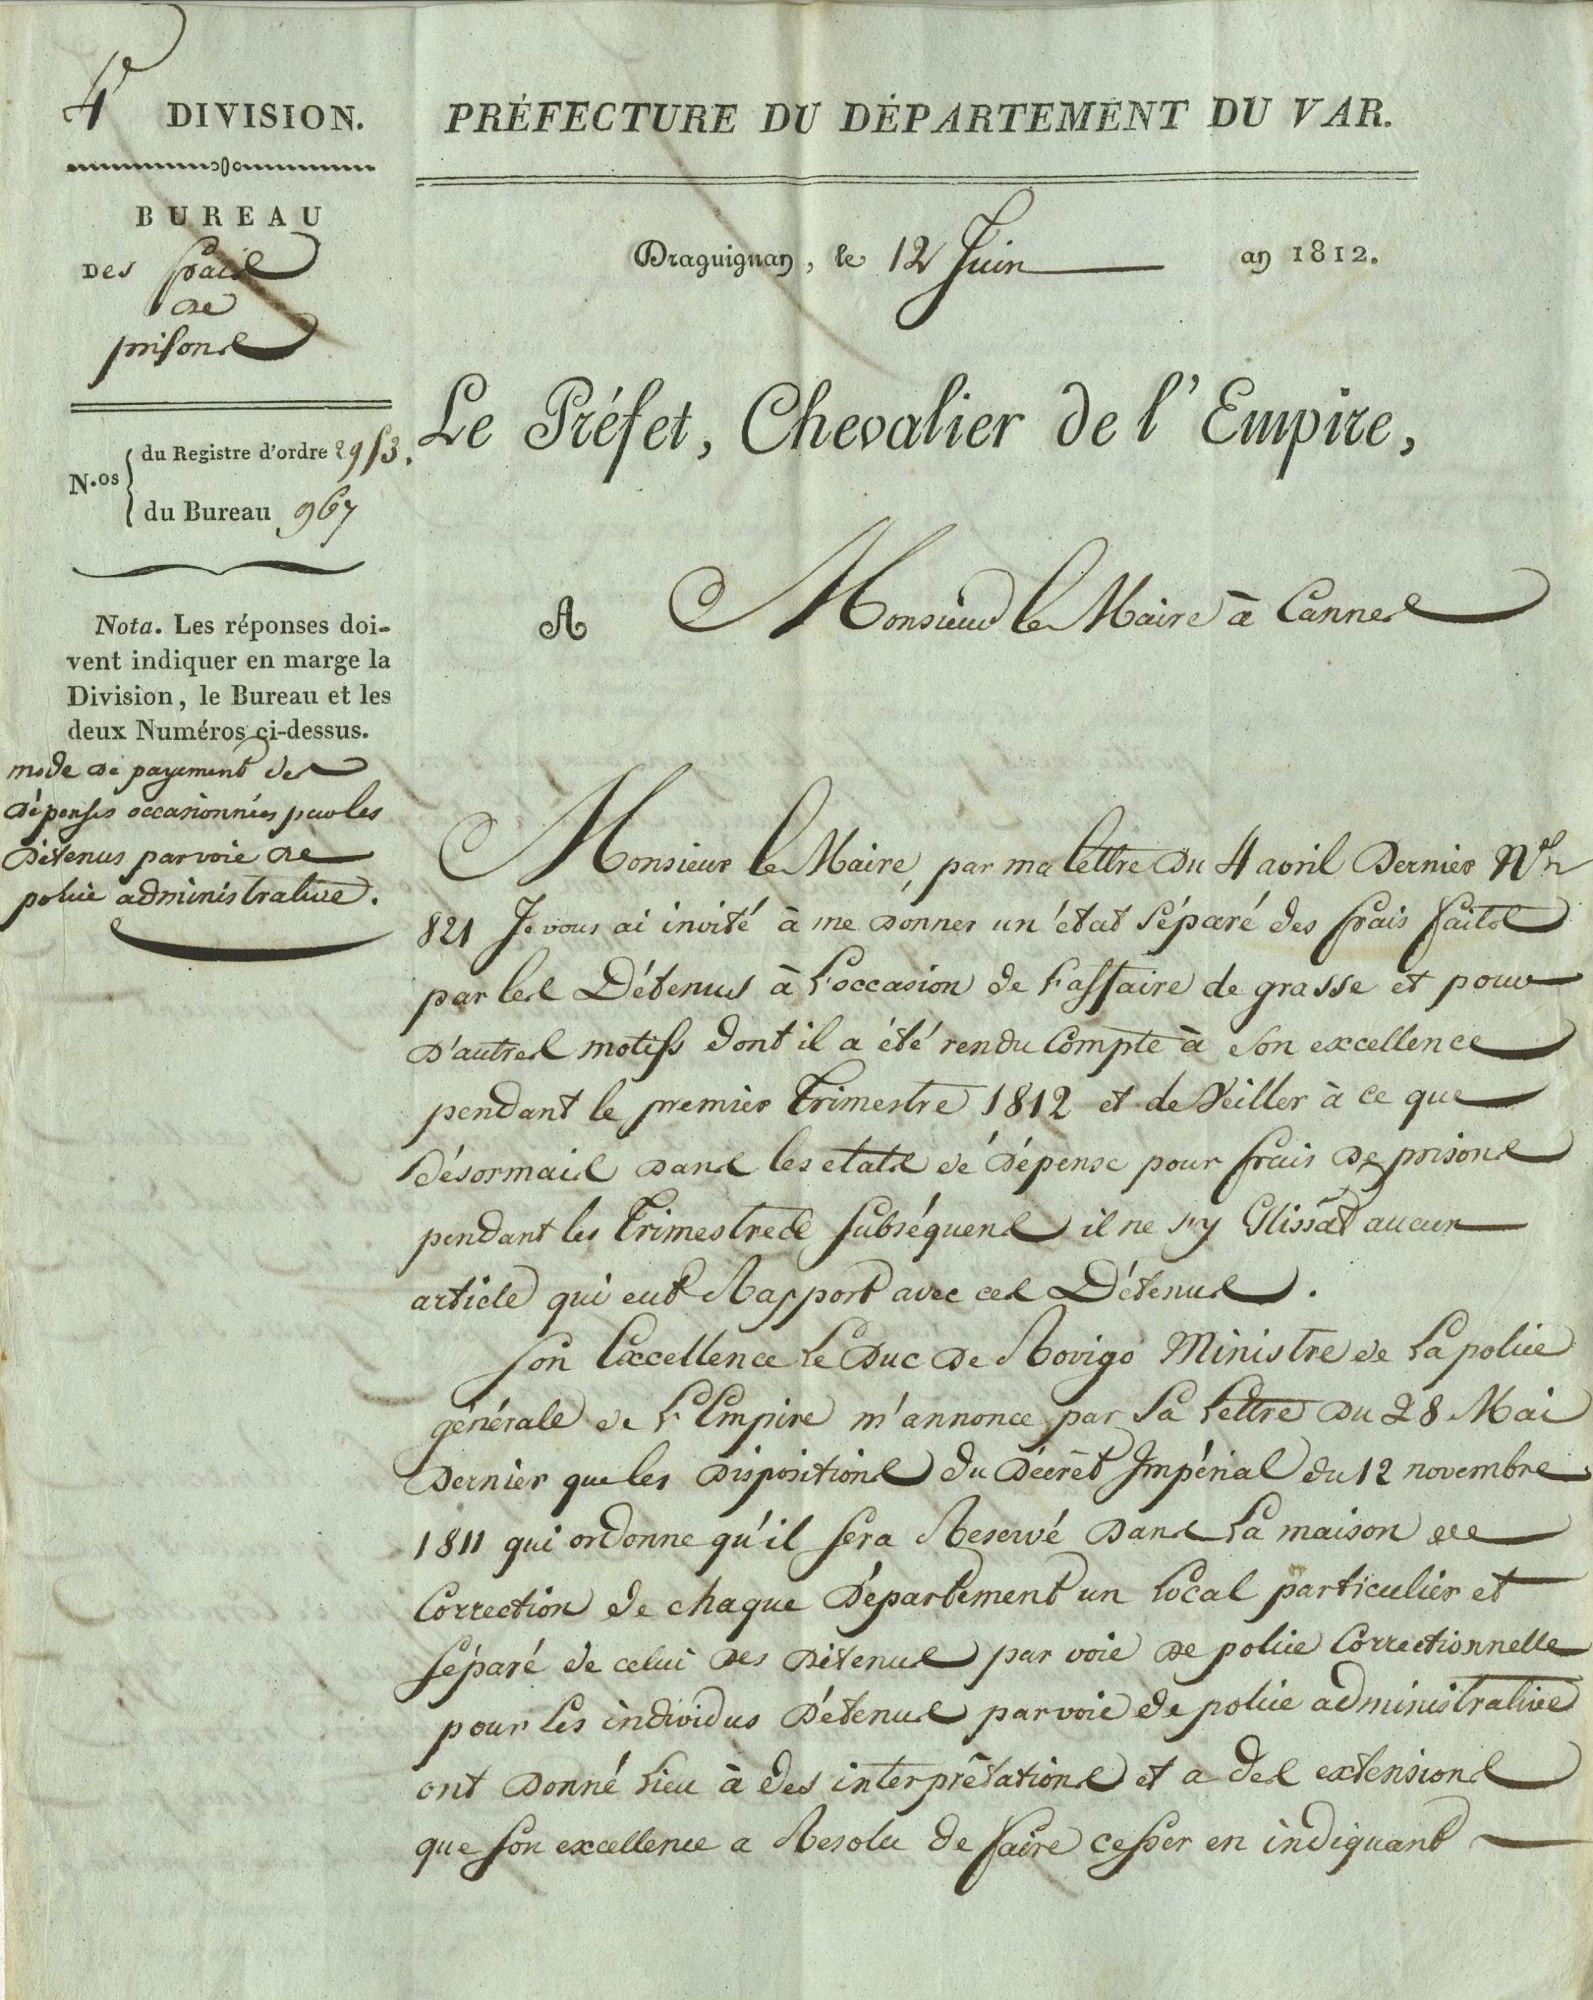 4e DIVISION.
BUREAU
Des frais
de
prisons
N.os
du Registre d'ordre 2953.
du Bureau 967
Nota. Les réponses doi-
vent indiquer en marge la
Division, le Bureau et les
deux Numéros ci-dessus.
mode de payement des
dépenses occasionnées par les
détenus par voie de
police administrative.
PRÉFECTURE DU DÉPARTEMENT DU VAR.
Draguignan, le 12 Juin an 1812.
Le Préfet, Chevalier de l'Empire,
A Monsieur le Maire à Cannes
Monsieur le Maire, par ma lettre du 4 avril dernier
821 Je vous ai invité à me donner un état séparé des frais faits
par les Détenus à l'occasion de l'affaire de grasse et pour
d'autres motifs dont il a été rendu Compte à son excellence
pendant le premier Trimestre 1812 et de Veiller à ce que
désormais dans les etats de dépense pour frais de prisons
pendant les Trimestres subséquens il ne s'y Glissat aucun
article qui eut Rapport avec ces Détenus.
son Excellence Le Duc de Rovigo Ministre de la police
générale de l'Empire m'annonce par sa lettre du 28 Mai
dernier que les dispositions du Décrêt Impérial du 12 novembre
1811 qui ordonne qu'il sera Reservé dans la maison de
Correction de chaque Département un local particulier et
séparé de celui des détenus par voie de police Correctionnelle
pour les individus détenus par voie de police administrative
ont donné lieu à des interprêtations et a des extensions
que son excellence a Resolu de faire cesser en indiquant